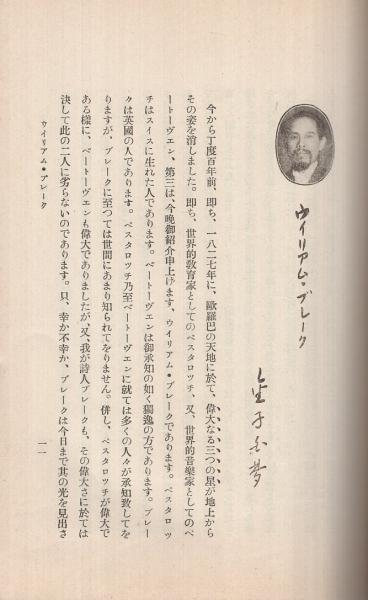 ウイリアム・ブレーク
今から丁度百年前、即ち、一八二七年に、歐羅巴の天地に於て、偉大なる三つの星が地上から
その姿を消しました。即ち、世界的敎育家としてのペスタロッチ、又、世界的音樂家としてのベ
ートーヴェン、第三は、今晩御紹介申上げます、ウイリアム・ブレークであります。ペスタロッ
チはスイスに生れた人であります。ベートーヴェンは御承知の如く獨逸の方であります。ブレー
クは英國の人であります。ペスタロッチ乃至ベートーヴェンに就ては多くの人々が承知致してを
りますが、ブレークに至つては世間にあまり知られてをりません。併し、ペスタロッチが偉大で
ある樣に、ベートーヴェンも偉大でありましたが、又、我が詩人ブレークも、その偉大さに於ては
決して此の二人に劣らないのであります。只、幸か不幸か、ブレークは今日まで其の光を見出さ
ウイリアム・ブレーク
一一